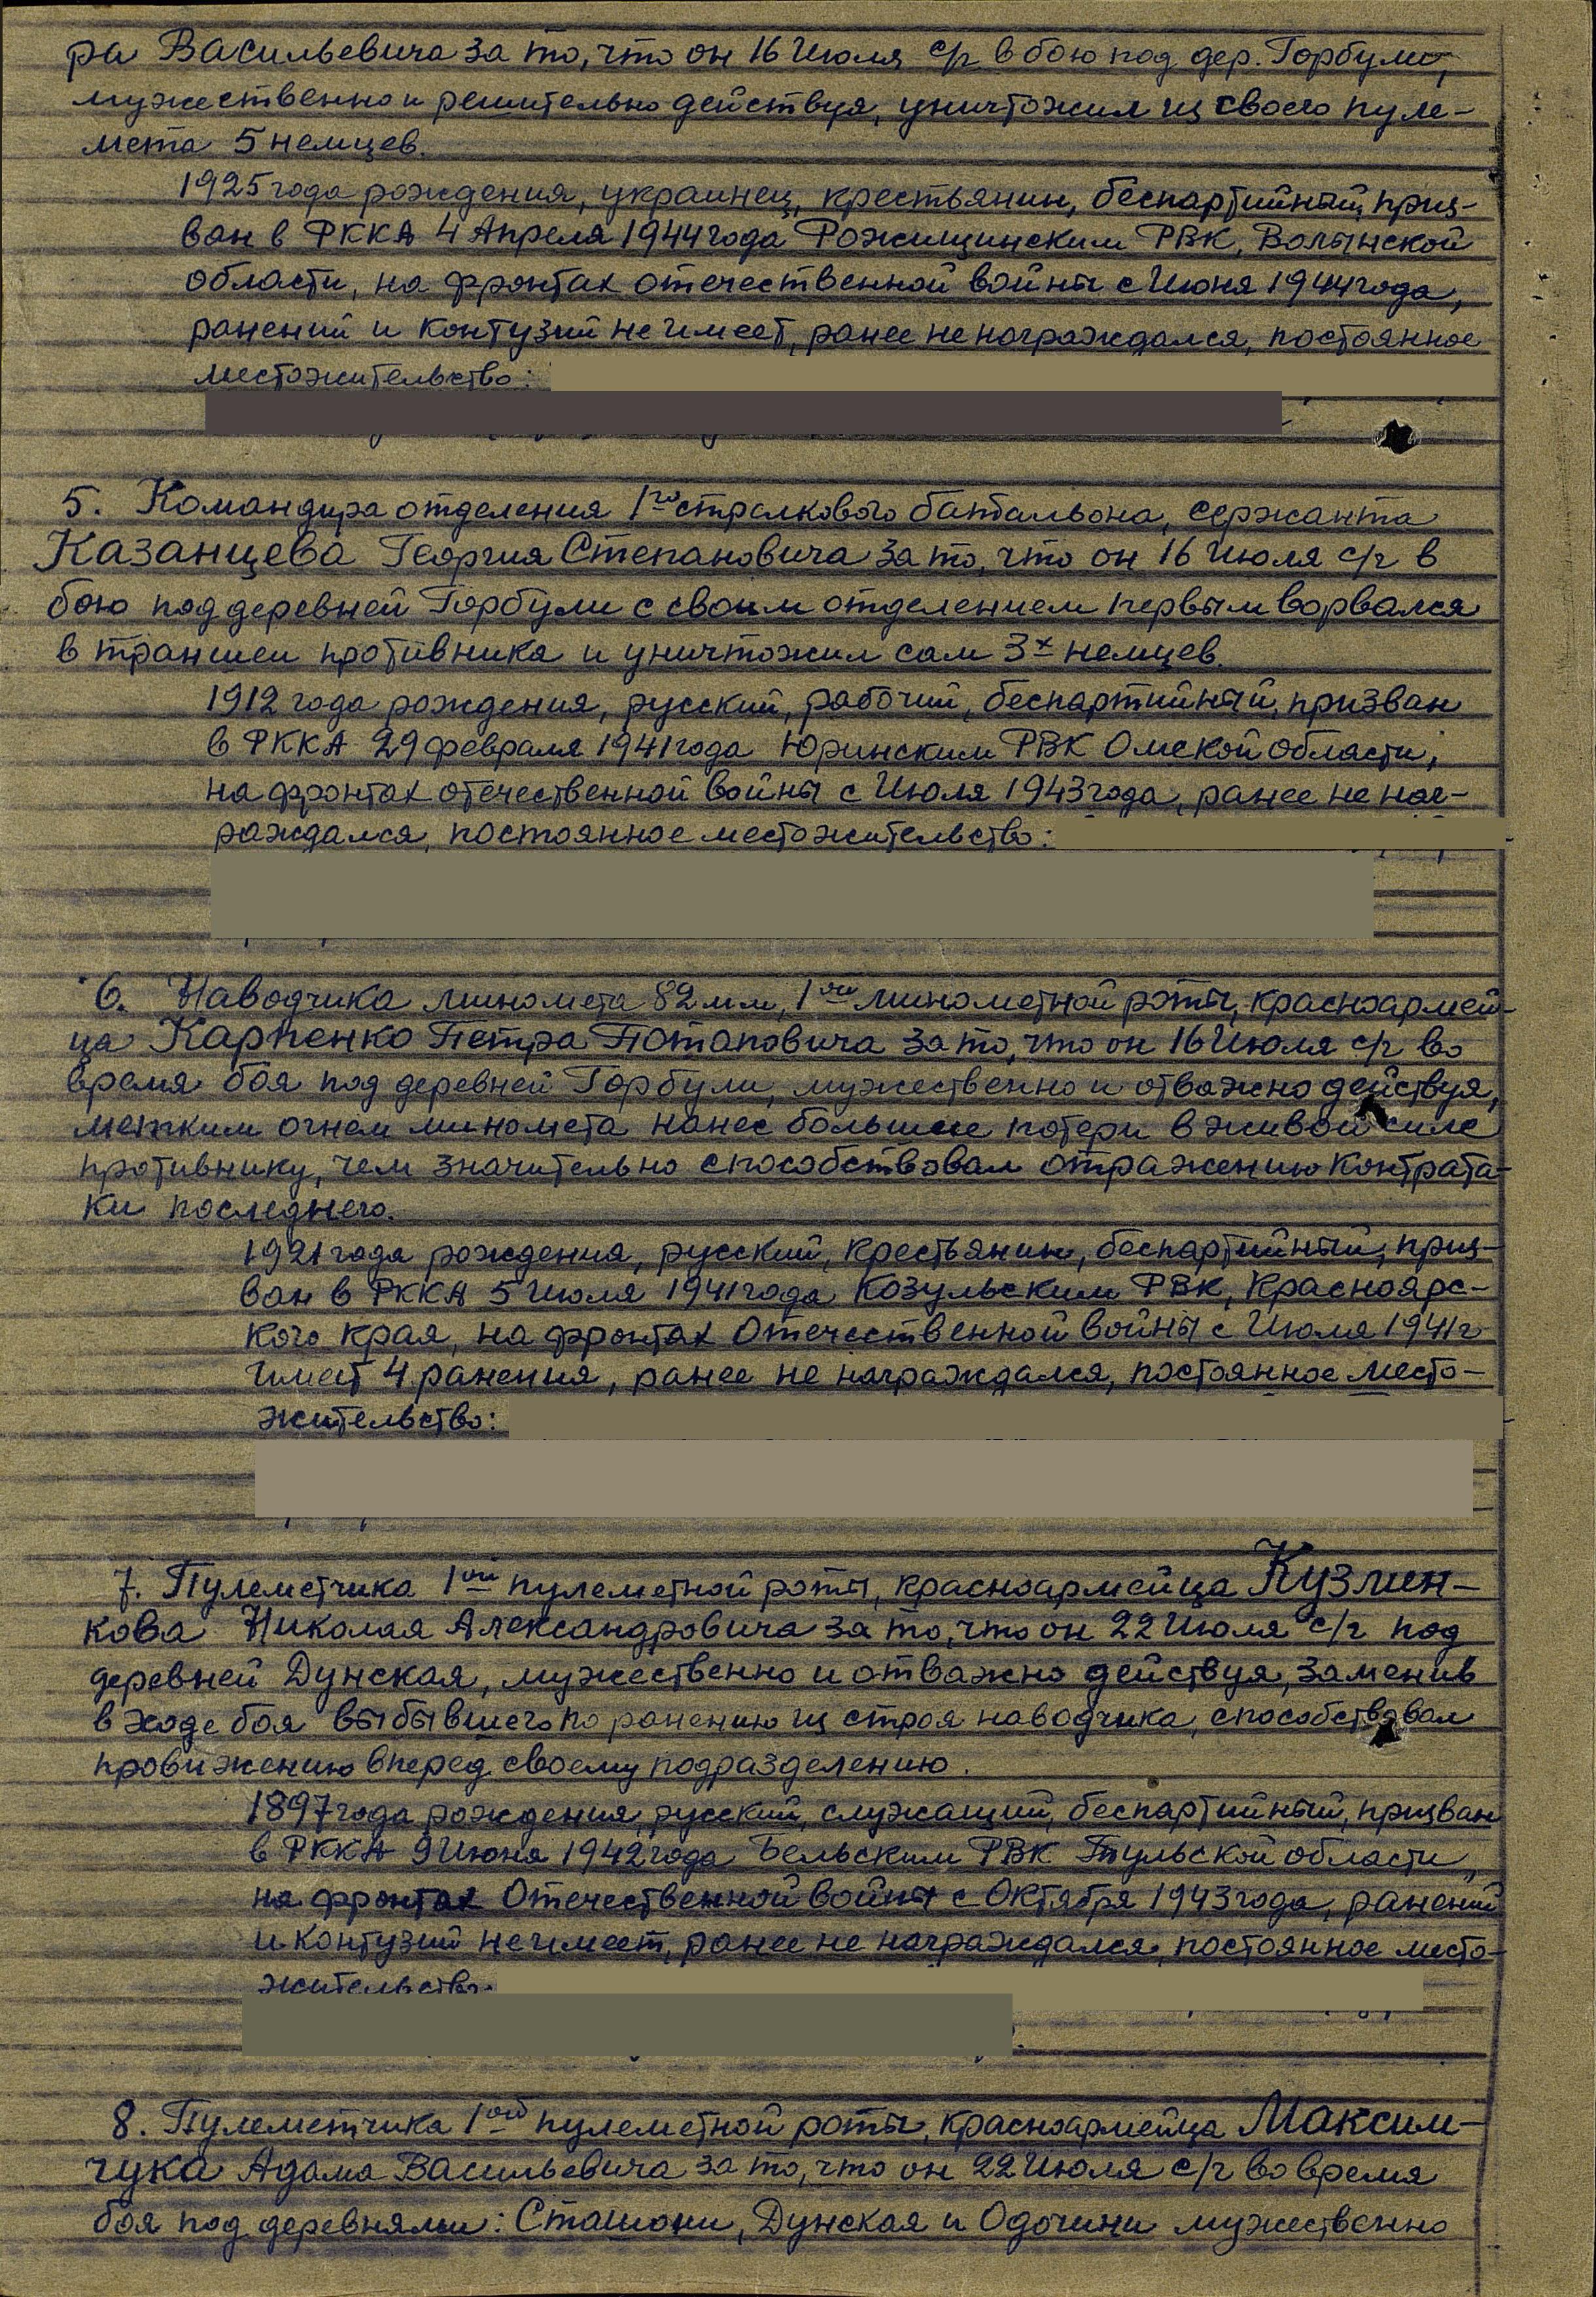 ра Васильевича за то, что он 16 Июля с/г в бою под дер. Горбули,
мужественно и решительно действуя, уничтожил из своего пуле-
мета 5 немцев.
1925 года рождения, украинец, крестьянин, беспартийный, приз-
ван в РККА 4 Апреля 1944 года Рожищинским РВК, Волынской
области, на фронтах отечественной войны с Июня 1944 года,
ранений и контузий не имеет, ранее не награждался, постоянное
местожительство:
5. Командира отделения 1го стрелкового батальона, сержанта
Казанцева Георгия Степановича за то, что он 16 Июля с/г в
бою под деревней Горбули с своим отделением первым ворвался
в траншеи противника и уничтожил сам 3х немцев.
1912 года рождения, русский, рабочий, беспартийный, призван
в РККА 29 февраля 1941 года Юринским РВК Омской области,
на фронтах отечественной войны с Июля 1943 года, ранее не наг-
раждался, постоянное местожительство:
6. Наводчика миномета 82 мм, 1ой минометной роты, красноармей-
ца Карпенко Петра Потаповича за то, что он 16 Июля с/г во
время боя под деревней Горбули, мужественно и отважно действуя,
метким огнем миномета нанес большие потери в живой силе
противнику, чем значительно способствовал отражению контрата-
ки последнего.
1921 года рождения, русский, крестьянин, беспартийный, приз-
ван в РККА 5 Июля 1941 года Козульским РВК, Красноярс-
кого края, на фронтах Отечественной войны с Июля 1941 г
имеет 4 ранения, ранее не награждался, постоянное место-
жительство:
7. Пулеметчика 1ой пулеметной роты, красноармейца Кузмин-
кова Николая Александровича за то, что он 22 Июля с/г под
деревней Дунская, мужественно и отважно действуя, заменив
в ходе боя выбывшего по ранению из строя наводчика, способствовал
провижению вперед своему подразделению.
1897 года рождения, русский, служащий, беспартийный, призван
в РККА 9 Июня 1942 года Бельским РВК Тульской области,
на фронтах Отечественной войны с Октября 1943 года, ранений
и контузий не имеет, ранее не награждался, постоянное место-
жительство:
8. Пулеметчика 1ой пулеметной роты, красноармейца Максим-
чука Адама Васильевича за то, что он 22 Июля с/г во время
боя под деревнями: Сташони, Дунская и Одочини мужественно